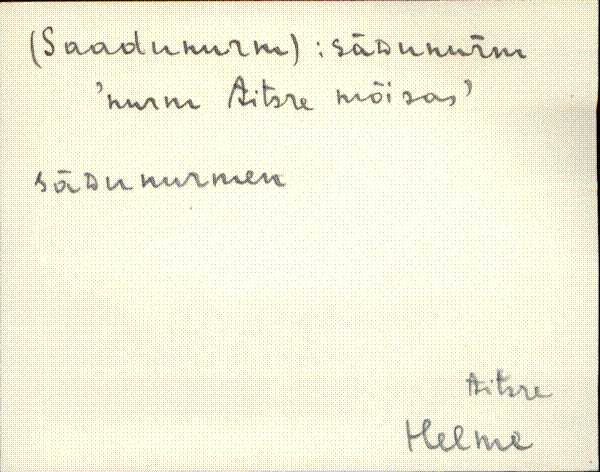 (Saadunurm) : sāᴅunur̄m
'nurm Aitsre mõisas'
sāᴅunurmen
Aitsre
Helme